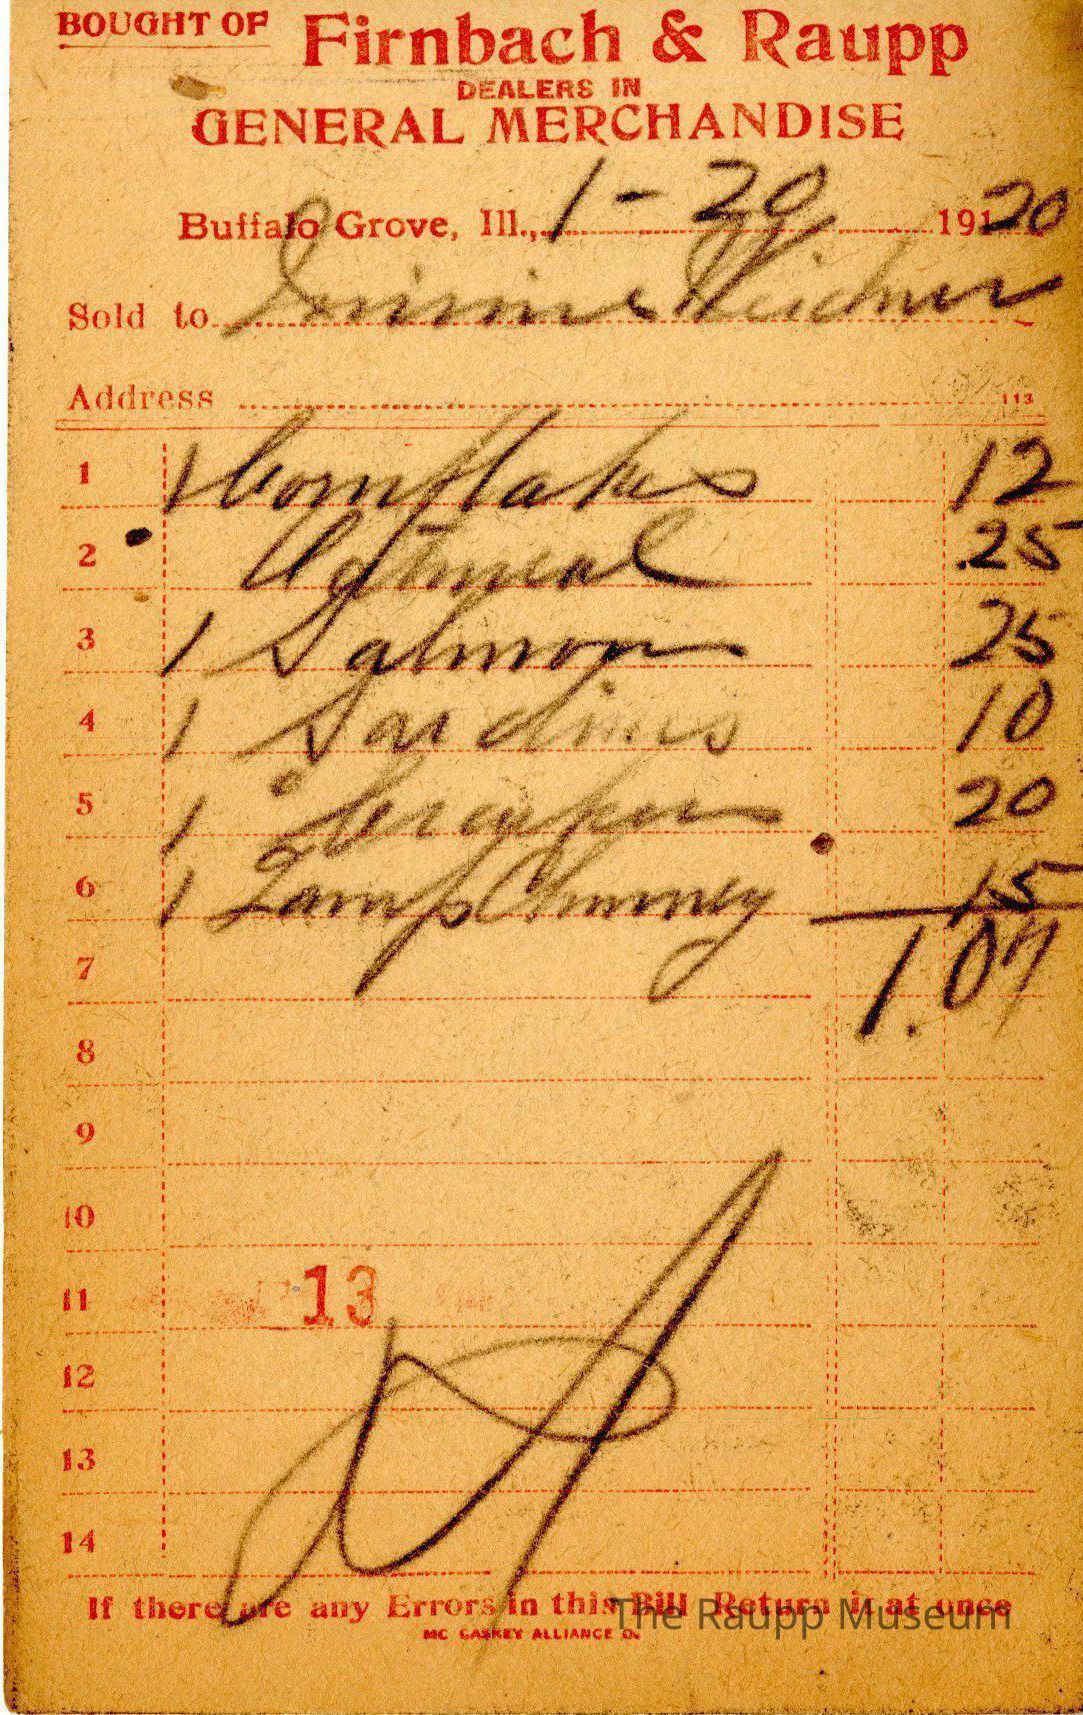 BOUGHT OF Firnbach & Raupp
DEALERS IN
GENERAL MERCHANDISE
Buffalo Grove, Ill., 1-20 19120
Sold to Weidner
Address 113
1 1 Cornflakes 12
2 Oatmeal .25
3 1 Salmon 25
4 1 Sardines 10
5 1 20
6 1 Lamp Chimney 15
7 1.07
8
9
10
11 13
12
13
14
If there are any Errors in this Bill Return it at once
The Raupp Museum
MC CASKEY ALLIANCE O.